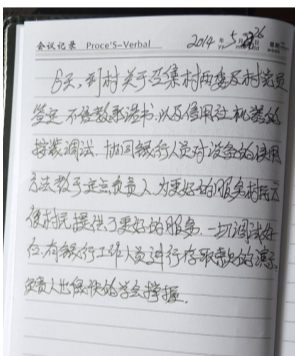 会议记录 Proce'S-Verbal 2014年5月26日
今天,到村关于召集村两委及村党员
签定不信教承诺书,以及信用社机器的
按装调法.协同银行人员对设备的使用
方法教于定点负责人,为更好的服务村民方
便村民提供了更好的服务.一切调试好
后,有银行工作人员进行存取款的演示
负责人也很快的学会撑握.